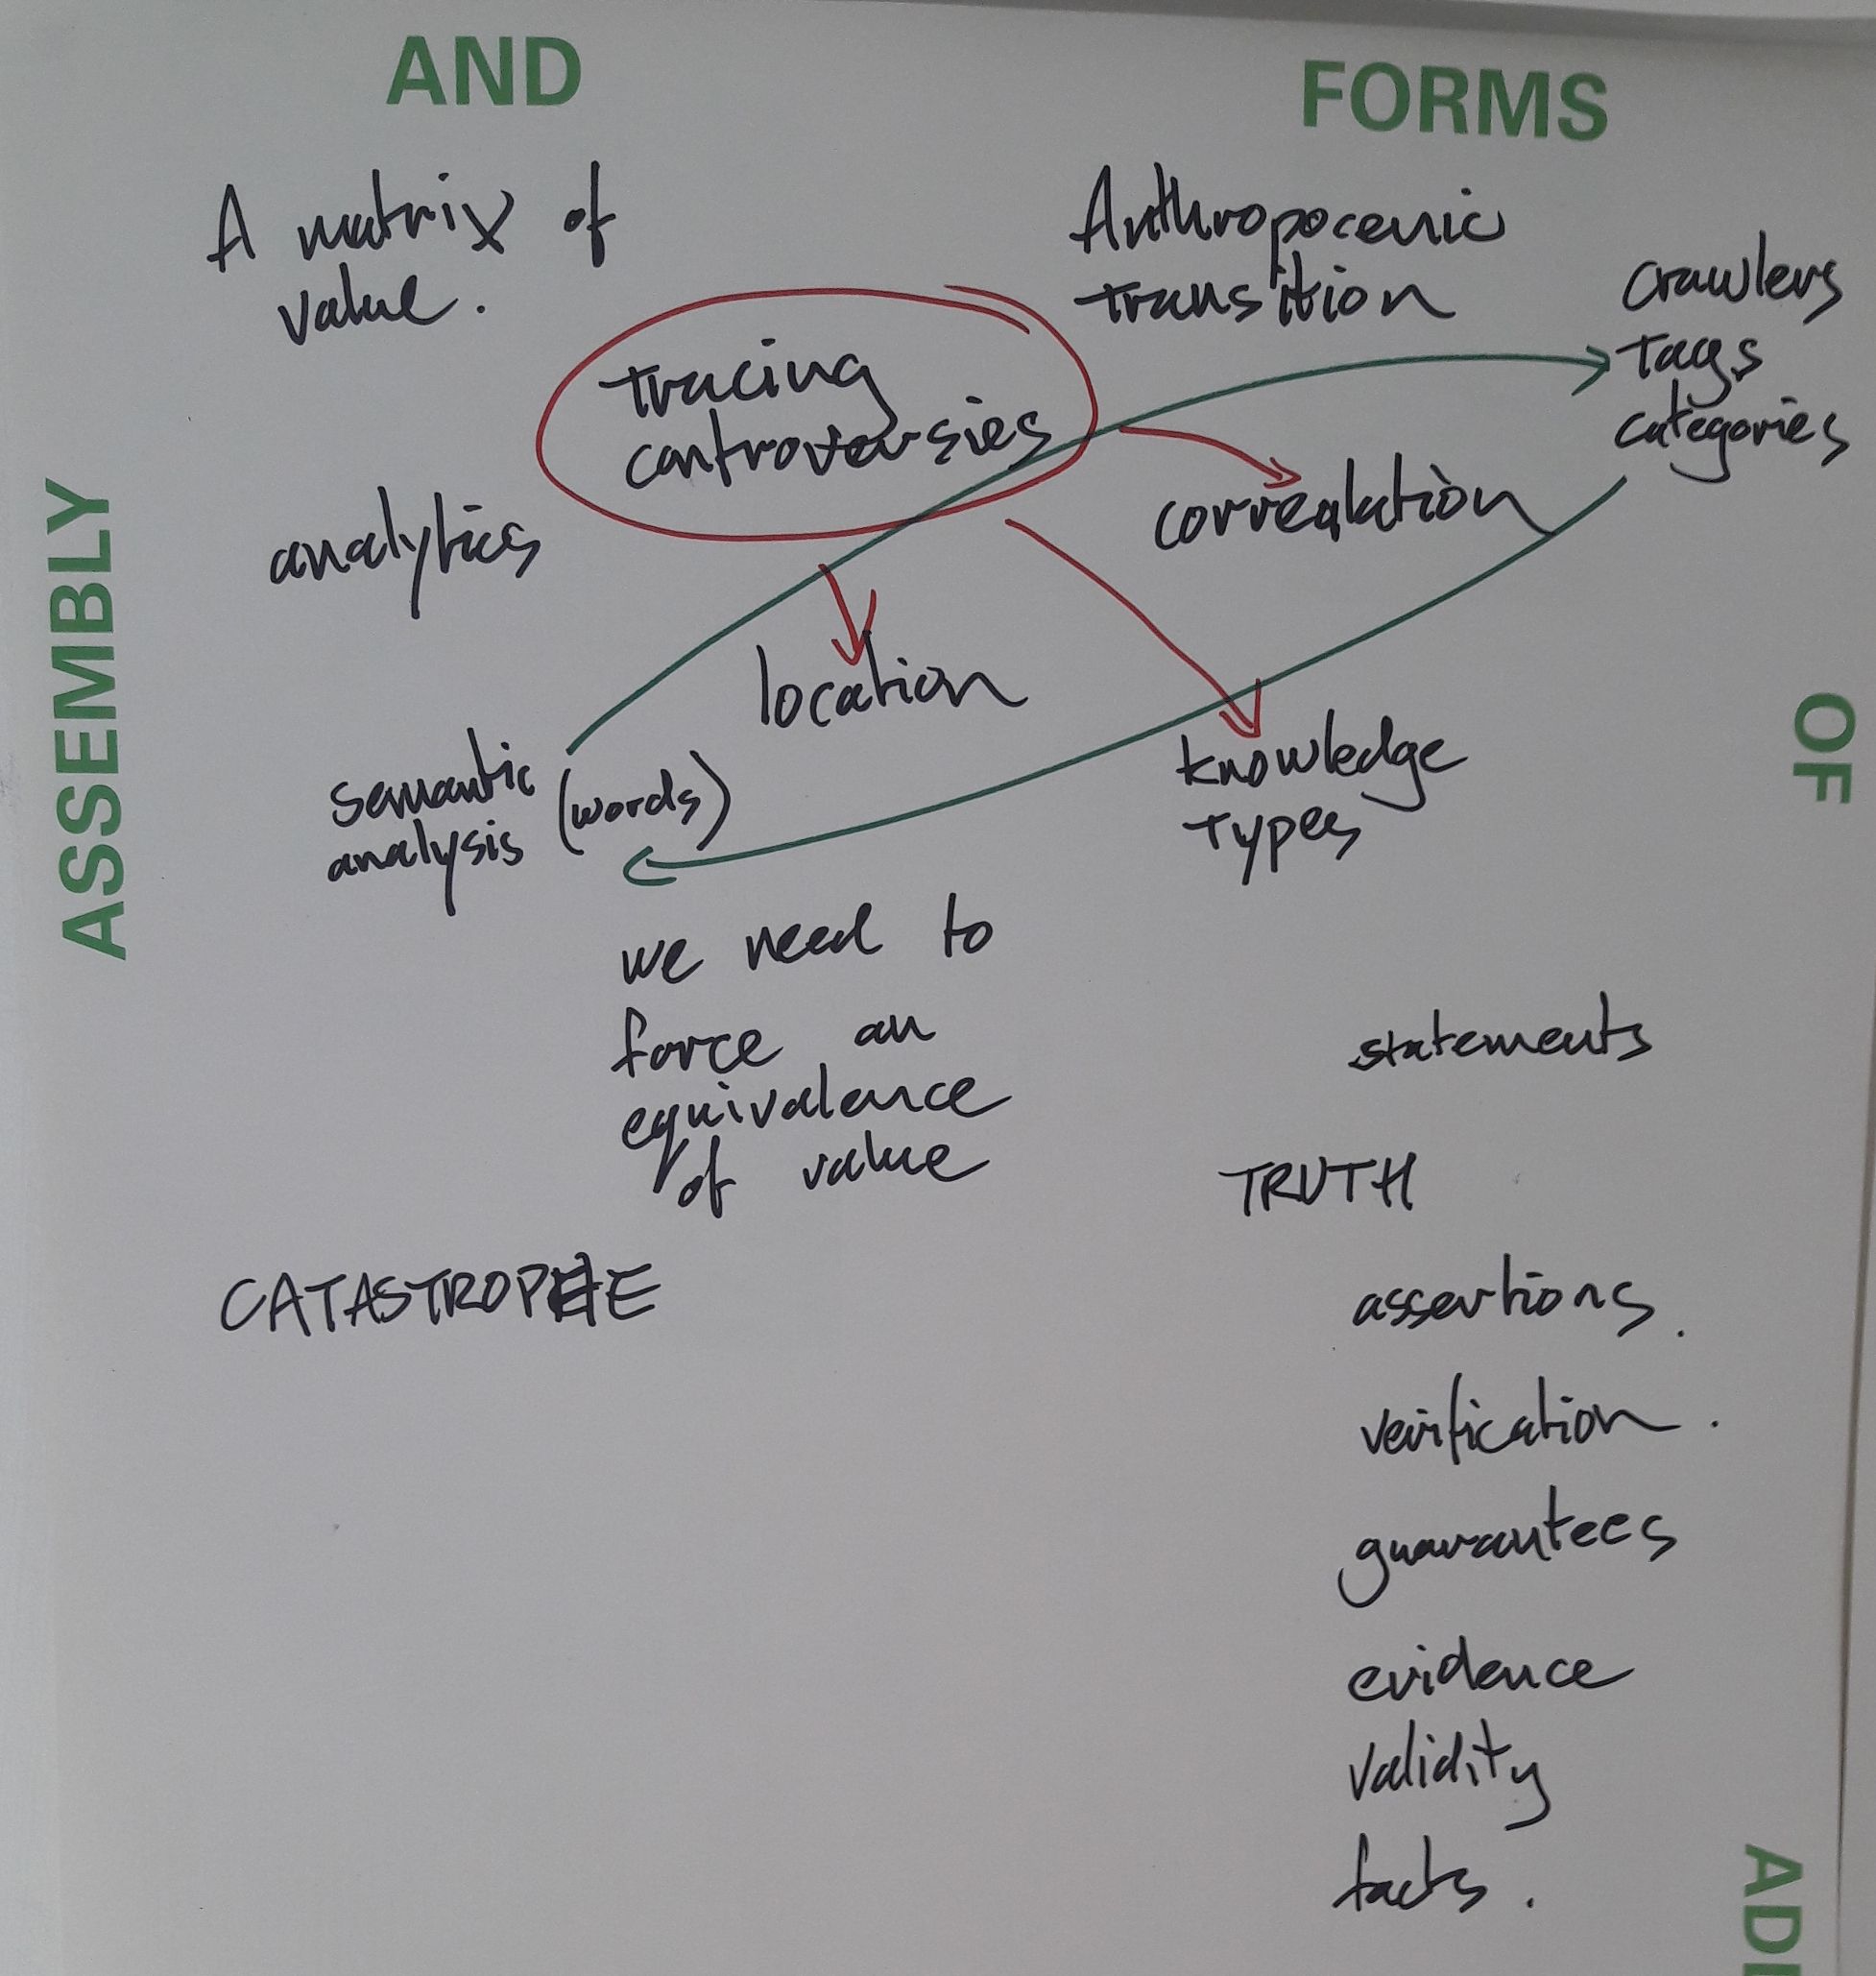 AND
FORMS
A matrix of
value.
Anthropocenic
transition
crawlers
tags
categories
tracing
controversies
ASSEMBLY
analytics
correalation
OF
location
semantic
analysis
(words)
knowledge
types
we need to
force an
equivalence
of value
statements
TRUTH
CATASTROPHE
assertions.
verification.
guarantees
evidence
validity
facts.